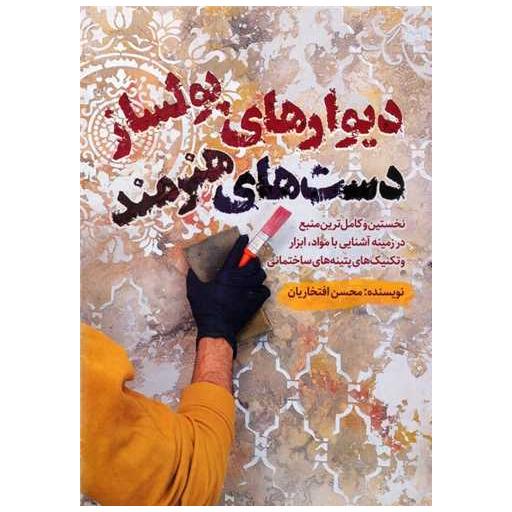 دیوارهای پولساز
دست‌های هنرمند
نخستین و کامل‌ترین منبع
در زمینه آشنایی با مواد، ابزار
و تکنیک‌های پتینه‌های ساختمانی
نویسنده: محسن افتخاریان